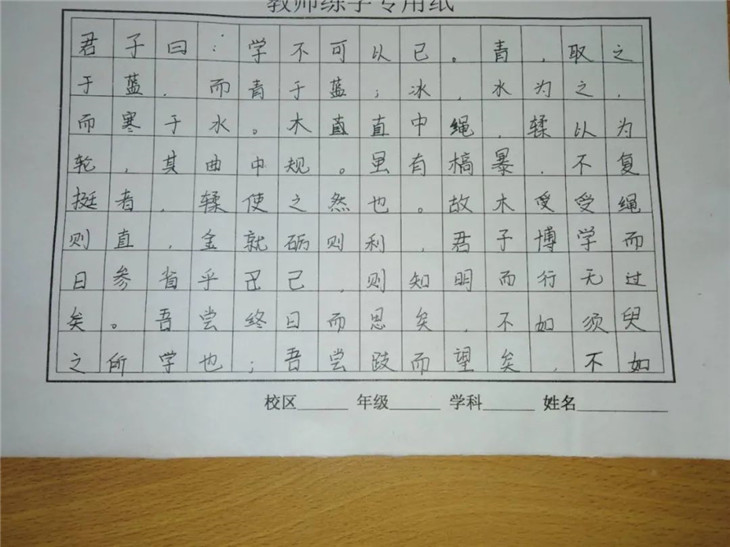 教师练字专用纸
君子曰：学不可以已。青，取之
于蓝，而青于蓝；冰，水为之，
而寒于水。木直直中绳，輮以为
轮，其曲中规。虽有槁暴，不复
挺者，輮使之然也。故木受受绳
则直，金就砺则利，君子博学而
日参省乎己己，则知明而行无过
矣。吾尝终日而思矣，不如须臾
之所学也；吾尝跂而望矣，不如
校区 年级 学科 姓名